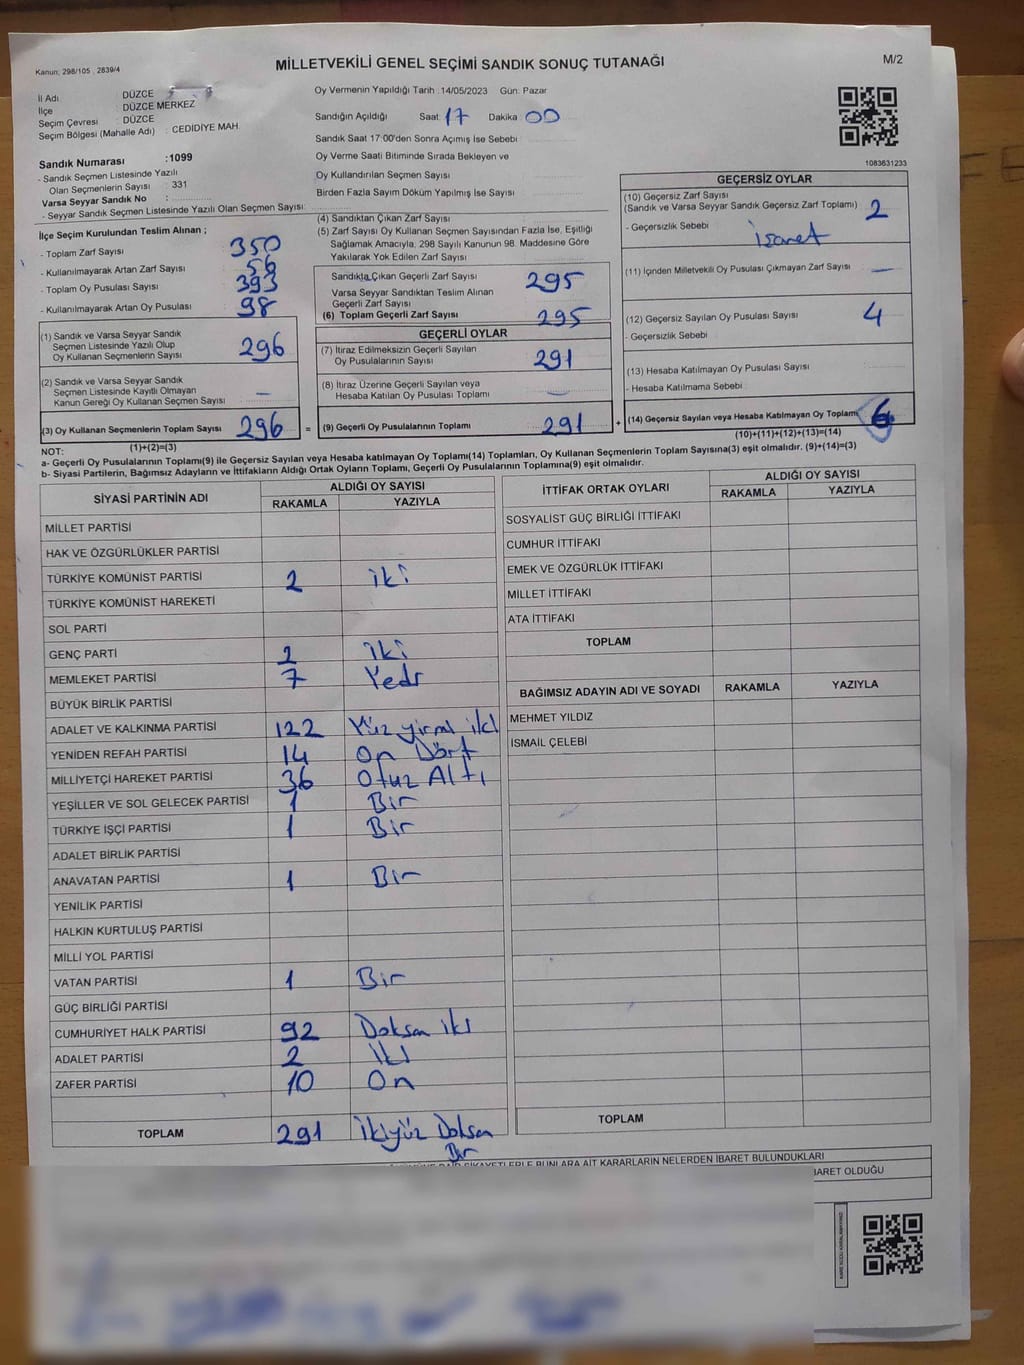 Kanun; 298/105 , 2839/4
MİLLETVEKİLİ GENEL SEÇİMİ SANDIK SONUÇ TUTANAĞI
M/2
İl Adı : DÜZCE
İlçe : DÜZCE MERKEZ
Seçim Çevresi : DÜZCE
Seçim Bölgesi (Mahalle Adı) : CEDİDİYE MAH.
Sandık Numarası :1099
- Sandık Seçmen Listesinde Yazılı
Olan Seçmenlerin Sayısı : 331
Varsa Seyyar Sandık No :
- Seyyar Sandık Seçmen Listesinde Yazılı Olan Seçmen Sayısı:
Oy Vermenin Yapıldığı Tarih :14/05/2023 Gün: Pazar
Sandığın Açıldığı Saat: 17 Dakika: 00
Sandık Saat 17:00'den Sonra Açımış İse Sebebi :
Oy Verme Saati Bitiminde Sırada Bekleyen ve
Oy Kullandırılan Seçmen Sayısı :
Birden Fazla Sayım Döküm Yapılmış İse Sayısı :
1083631233
İlçe Seçim Kurulundan Teslim Alınan ;
- Toplam Zarf Sayısı : 350
- Kullanılmayarak Artan Zarf Sayısı : 56
- Toplam Oy Pusulası Sayısı : 393
- Kullanılmayarak Artan Oy Pusulası : 98
(1) Sandık ve Varsa Seyyar Sandık
Seçmen Listesinde Yazılı Olup
Oy Kullanan Seçmenlerin Sayısı 296
(2) Sandık ve Varsa Seyyar Sandık
Seçmen Listesinde Kayıtlı Olmayan
Kanun Gereği Oy Kullanan Seçmen Sayısı : —
(3) Oy Kullanan Seçmenlerin Toplam Sayısı 296
(1)+(2)=(3)
(4) Sandıktan Çıkan Zarf Sayısı :
(5) Zarf Sayısı Oy Kullanan Seçmen Sayısından Fazla İse, Eşitliği
Sağlamak Amacıyla, 298 Sayılı Kanunun 98. Maddesine Göre
Yakılarak Yok Edilen Zarf Sayısı :
Sandıkta Çıkan Geçerli Zarf Sayısı : 295
Varsa Seyyar Sandıktan Teslim Alınan
Geçerli Zarf Sayısı :
(6) Toplam Geçerli Zarf Sayısı : 295
GEÇERLİ OYLAR
(7) İtiraz Edilmeksizin Geçerli Sayılan
Oy Pusulalarının Sayısı : 291
(8) İtiraz Üzerine Geçerli Sayılan veya
Hesaba Katılan Oy Pusulası Toplamı : —
= (9) Geçerli Oy Pusulalarının Toplamı : 291 +
GEÇERSİZ OYLAR
(10) Geçersiz Zarf Sayısı
(Sandık ve Varsa Seyyar Sandık Geçersiz Zarf Toplamı) : 2
- Geçersizlik Sebebi : İsaret
(11) İçinden Milletvekili Oy Pusulası Çıkmayan Zarf Sayısı : —
(12) Geçersiz Sayılan Oy Pusulası Sayısı : 4
- Geçersizlik Sebebi :
(13) Hesaba Katılmayan Oy Pusulası Sayısı :
- Hesaba Katılmama Sebebi :
(14) Geçersiz Sayılan veya Hesaba Katılmayan Oy Toplamı : 6
(10)+(11)+(12)+(13)=(14)
NOT:
a- Geçerli Oy Pusulalarının Toplamı(9) ile Geçersiz Sayılan veya Hesaba katılmayan Oy Toplamı(14) Toplamları, Oy Kullanan Seçmenlerin Toplam Sayısına(3) eşit olmalıdır. (9)+(14)=(3)
b- Siyasi Partilerin, Bağımsız Adayların ve İttifakların Aldığı Ortak Oyların Toplamı, Geçerli Oy Pusulalarının Toplamına(9) eşit olmalıdır.
SİYASİ PARTİNİN ADI ALDIĞI OY SAYISI
RAKAMLA YAZIYLA
MİLLET PARTİSİ
HAK VE ÖZGÜRLÜKLER PARTİSİ
TÜRKİYE KOMÜNİST PARTİSİ 2 iki
TÜRKİYE KOMÜNİST HAREKETİ
SOL PARTİ
GENÇ PARTİ 2 iki
MEMLEKET PARTİSİ 7 Yedi
BÜYÜK BİRLİK PARTİSİ
ADALET VE KALKINMA PARTİSİ 122 Yüz yirmi iki
YENİDEN REFAH PARTİSİ 14 On Dört
MİLLİYETÇİ HAREKET PARTİSİ 36 Otuz Altı
YEŞİLLER VE SOL GELECEK PARTİSİ 1 Bir
TÜRKİYE İŞÇİ PARTİSİ 1 Bir
ADALET BİRLİK PARTİSİ
ANAVATAN PARTİSİ 1 Bir
YENİLİK PARTİSİ
HALKIN KURTULUŞ PARTİSİ
MİLLİ YOL PARTİSİ
VATAN PARTİSİ 1 Bir
GÜÇ BİRLİĞİ PARTİSİ
CUMHURİYET HALK PARTİSİ 92 Doksan iki
ADALET PARTİSİ 2 iki
ZAFER PARTİSİ 10 On
TOPLAM 291 İkiyüz Doksan
Bir
İTTİFAK ORTAK OYLARI ALDIĞI OY SAYISI
RAKAMLA YAZIYLA
SOSYALİST GÜÇ BİRLİĞİ İTTİFAKI
CUMHUR İTTİFAKI
EMEK VE ÖZGÜRLÜK İTTİFAKI
MİLLET İTTİFAKI
ATA İTTİFAKI
TOPLAM
BAĞIMSIZ ADAYIN ADI VE SOYADI RAKAMLA YAZIYLA
MEHMET YILDIZ
İSMAİL ÇELEBİ
TOPLAM
ŞİKAYETLERLE BUNLARA AİT KARARLARIN NELERDEN İBARET BULUNDUKLARI
İBARET OLDUĞU